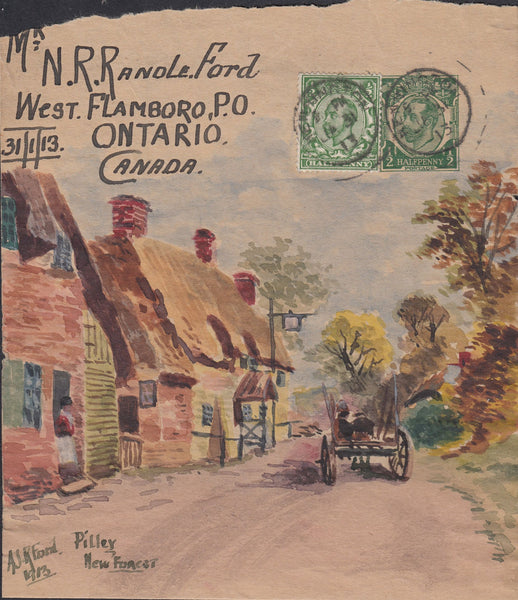 Mr
N.R. Randle. Ford
West. Flamboro, P.O.
31/1/13. ONTARIO.
Canada.
HALFPENNY
1/2 HALFPENNY 1/2
POSTAGE
A.J.R Ford.
1913
Pilley
New Forest